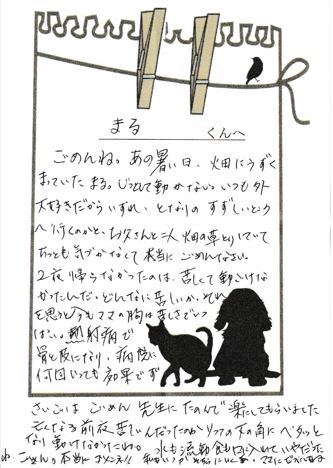 まる くんへ
ごめんね。あの暑い日、畑にうずく
まっていた まる。じっとして動かない。いつも外
大好きだからいずれ、となりの すずしいところ
へ行くのかと、お父さんと二人 畑の草とりしていて
ちっとも気づかなくて本当に ごめんなさい。
2夜帰らなかったのは、苦しくて動けな
かったんだ。どんなに苦しいか、それ
を思うと今もママの胸は苦しさでいっ
ぱい。熱射病で
骨と皮になり、病院に
何回いっても
さいごは ごめん 先生に たのんで 楽にしてもらいました
亡くなる前夜 苦しんだったのか ソファの下の角に ベタッと
なり 動けなかったね。水も流動食も口に
ごめん。本当に